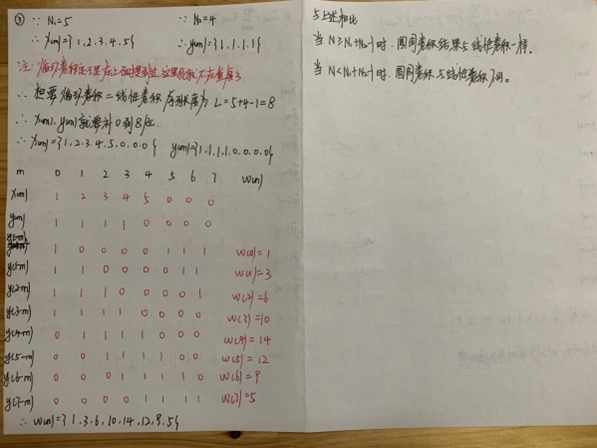 ③ ∵ N₁=5 ∵ N₂=4
∴ x(n)={1,2,3,4,5} ∴ y(n)={1,1,1,1}
注:循环卷积定理 在上面提到过,这里我就不在重复了
∴ 想要循环卷积=线性卷积 序列长度为 L=5+4-1=8
∴ x(n), y(n)就要补0到8位
∴ x(n)={1,2,3,4,5,0,0,0} y(n)={1,1,1,1,0,0,0,0}
m 0 1 2 3 4 5 6 7 w(n)
x(m) 1 2 3 4 5 0 0 0
y(m) 1 1 1 1 0 0 0 0
y(-m) 1 0 0 0 0 1 1 1 w(0)=1
y(1-m) 1 1 0 0 0 0 1 1 w(1)=3
y(2-m) 1 1 1 0 0 0 0 1 w(2)=6
y(3-m) 1 1 1 1 0 0 0 0 w(3)=10
y(4-m) 0 1 1 1 1 0 0 0 w(4)=14
y(5-m) 0 0 1 1 1 1 0 0 w(5)=12
y(6-m) 0 0 0 1 1 1 1 0 w(6)=9
y(7-m) 0 0 0 0 1 1 1 1 w(7)=5
∴ w(n)={1,3,6,10,14,12,9,5}
与上述相比
当 N≥N₁+N₂-1时,圆周卷积结果与线性卷积一样。
当 N<N₁+N₂-1时,圆周卷积与线性卷积不同。